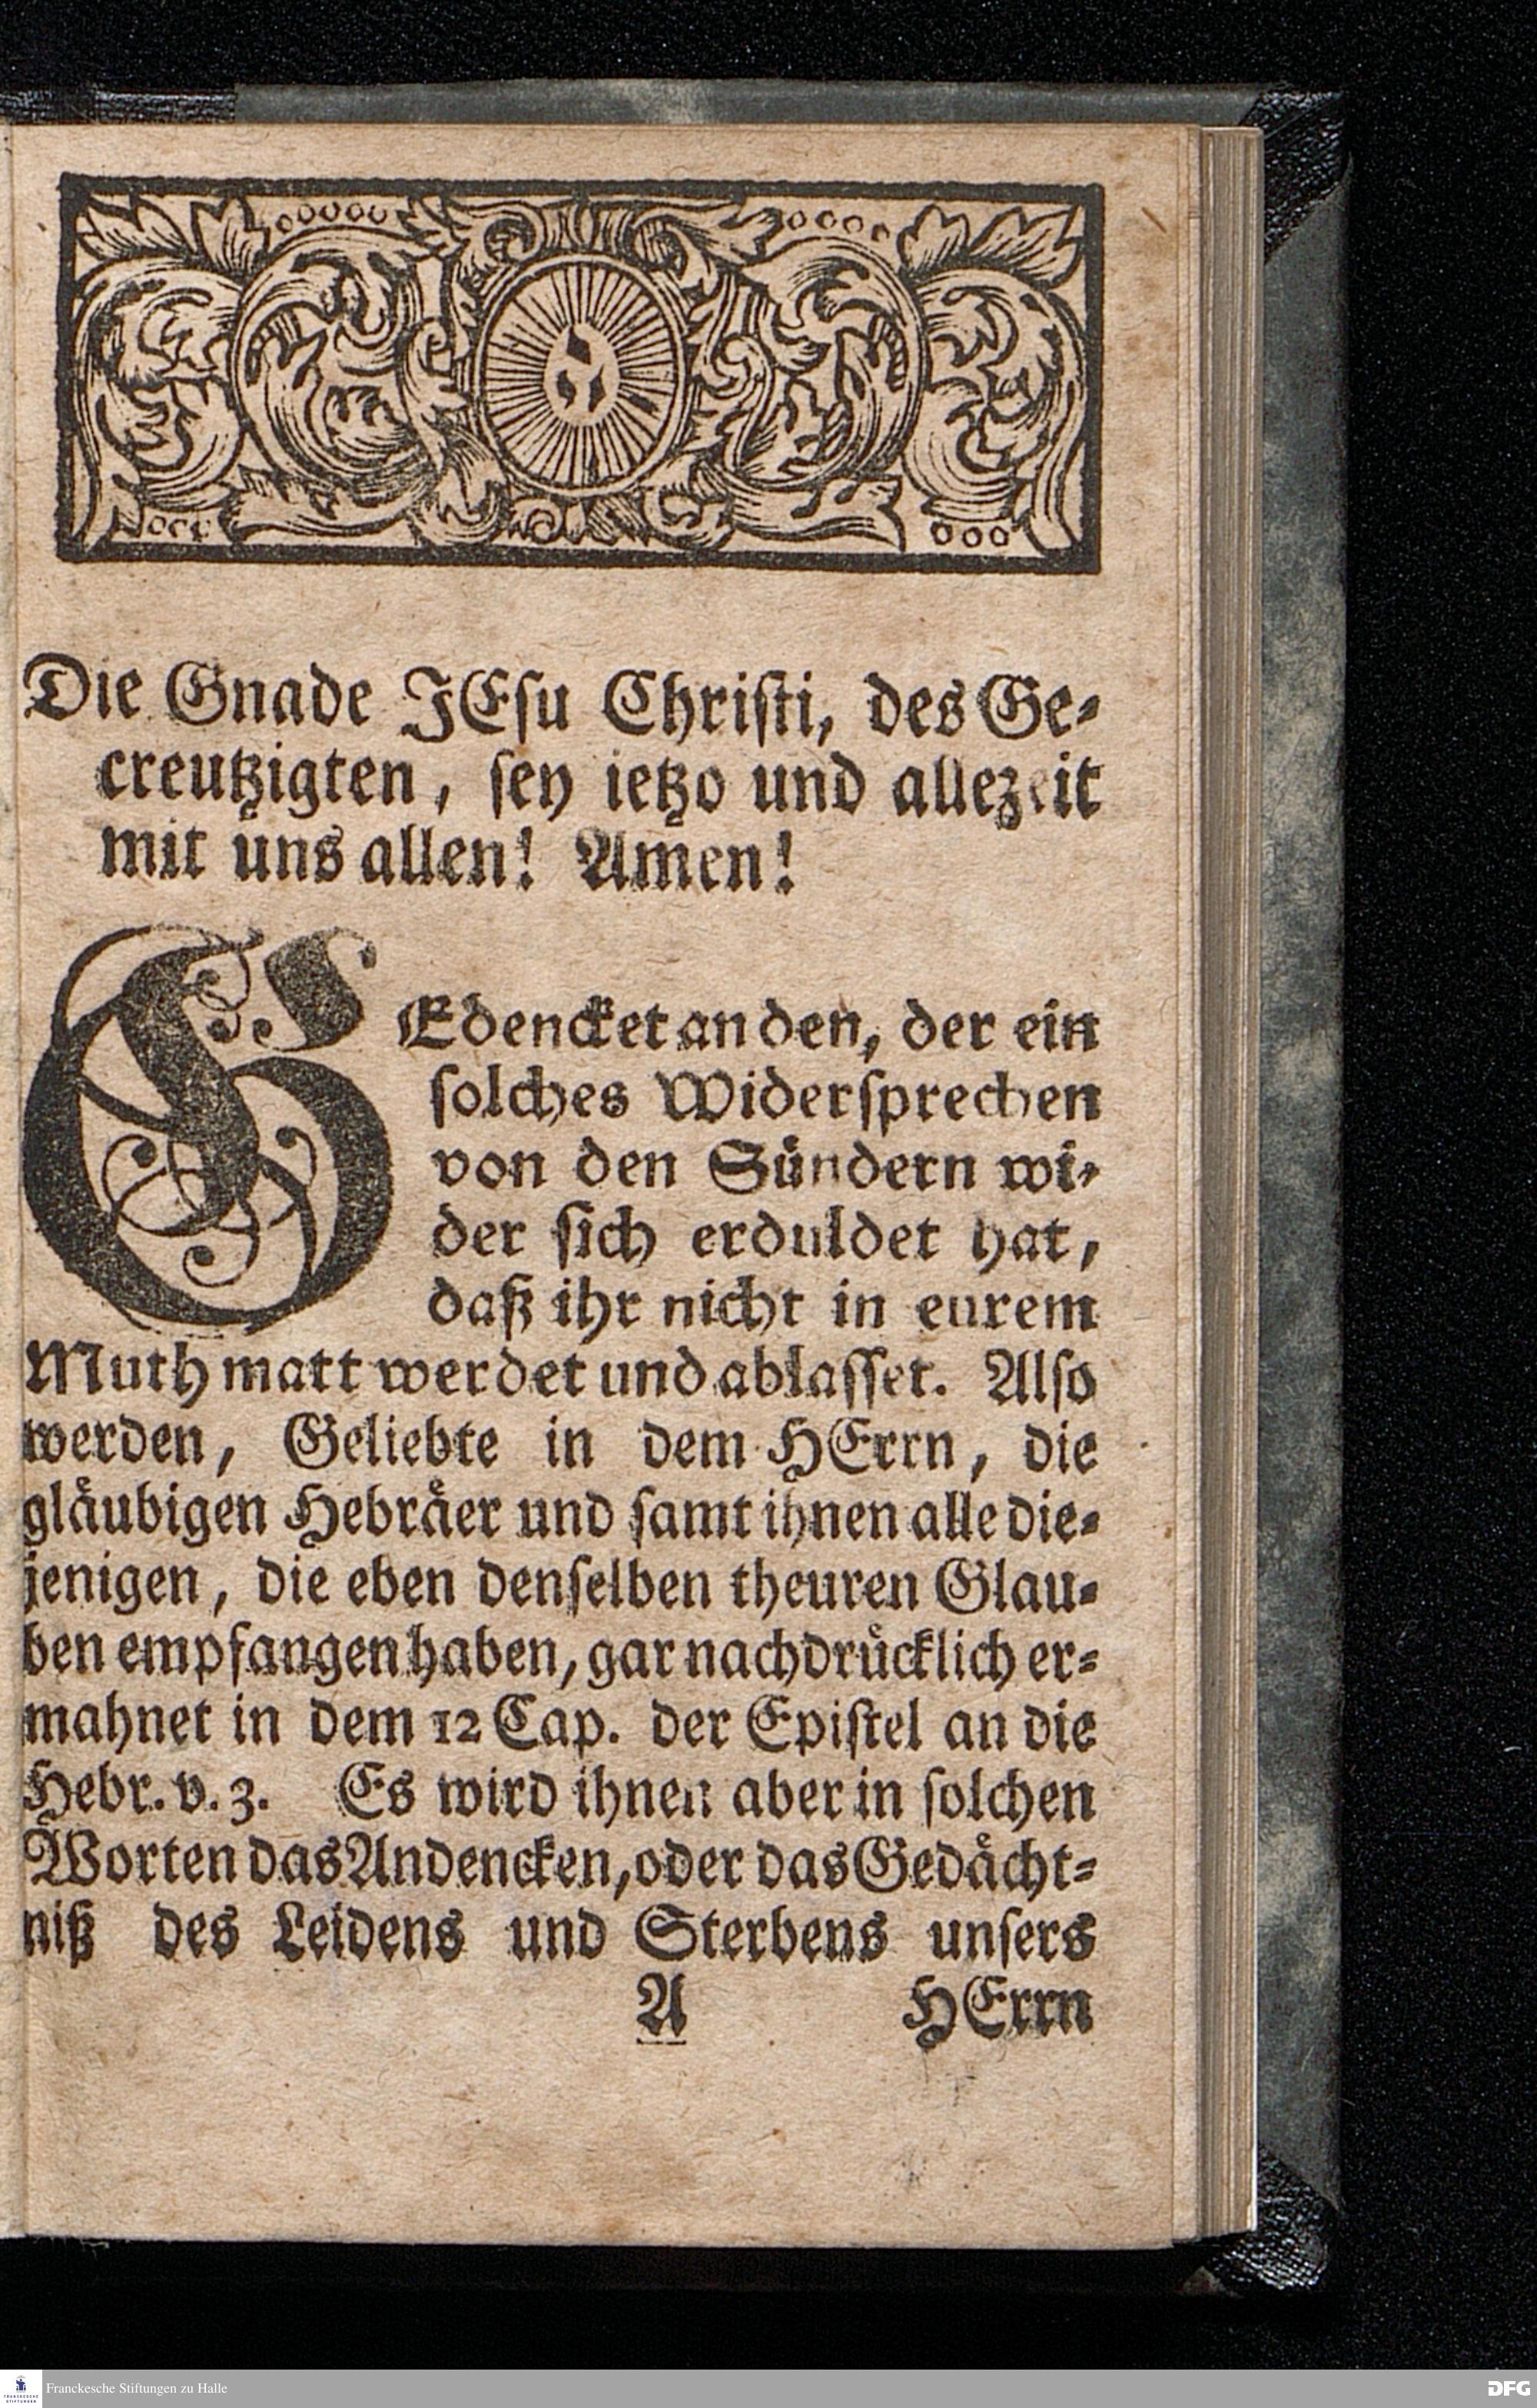 Die Gnade JEsu Christi, des Ge-
creutzigten, sey ietzo und allezeit
mit uns allen! Amen!
GEdencket an den, der ein
solches Widersprechen
von den Sündern wi-
der sich erduldet hat,
daß ihr nicht in eurem
Muth matt werdet und ablasset. Also
werden, Geliebte in dem HErrn, die
gläubigen Hebräer und samt ihnen alle die-
jenigen, die eben denselben theuren Glau-
ben empfangen haben, gar nachdrücklich er-
mahnet in dem 12 Cap. der Epistel an die
Hebr. v. 3. Es wird ihnen aber in solchen
Worten das Andencken, oder das Gedächt-
niß des Leidens und Sterbens unsers
A HErrn
FRANCKESCHE STIFTUNGEN
Franckesche Stiftungen zu Halle
DFG